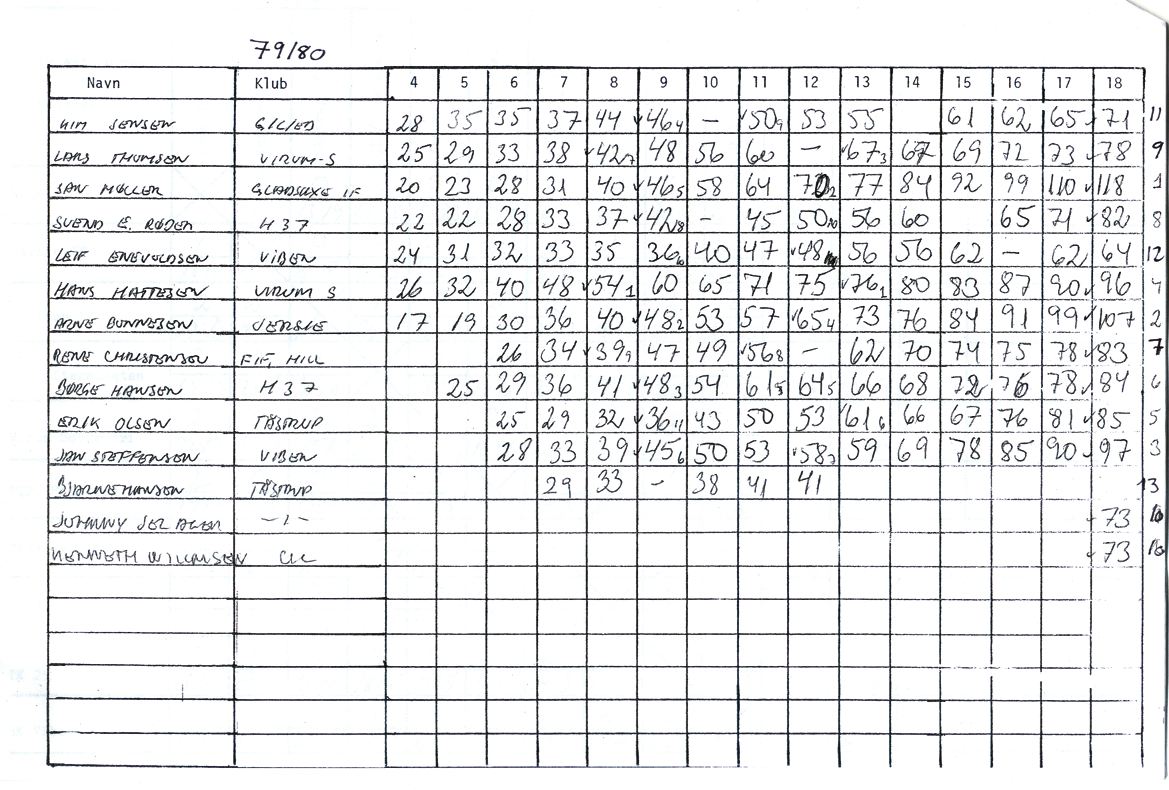 79/80
Navn Klub 4 5 6 7 8 9 10 11 12 13 14 15 16 17 18
KIM JENSEN 28 35 35 37 44 46 4 — 50 9 53 55 61 62 65 71 11
LARS THOMSEN VIRUM-S 25 29 33 38 42 7 48 56 60 — 67 3 67 69 72 73 78 9
JAN MØLLER GLADSAXE IF 20 23 28 31 40 46 5 58 64 70 2 77 84 92 99 110 118 1
SVEND E. H 37 22 22 28 33 37 42 8 — 45 50 10 56 60 65 71 82 8
LEIF ENEVOLDSEN VIBEN 24 31 32 33 35 36 40 47 48 56 56 62 — 62 64 12
HANS MATTESEN VIRUM S 26 32 40 48 54 1 60 65 71 75 76 1 80 83 87 90 96 4
ARNE BONNESEN JERSIE 17 19 30 36 40 48 2 53 57 65 4 73 76 84 91 99 107 2
RENE CHRISTENSEN FIF, HILL 26 34 39 9 47 49 56 8 — 62 70 74 75 78 83 7
BØRGE HANSEN H 37 25 29 36 41 48 3 54 61 5 64 5 66 68 72 76 78 84 6
ERIK OLSEN TÅSTRUP 25 29 32 36 11 43 50 53 61 6 66 67 76 81 85 5
JAN STEFFENSEN VIBEN 28 33 39 45 6 50 53 58 7 59 69 78 85 90 97 3
BJARNE HANSEN TÅSTRUP 29 33 - 38 41 41 13
JOHNNY —1— 73 10
KENNETH CIC 73 10